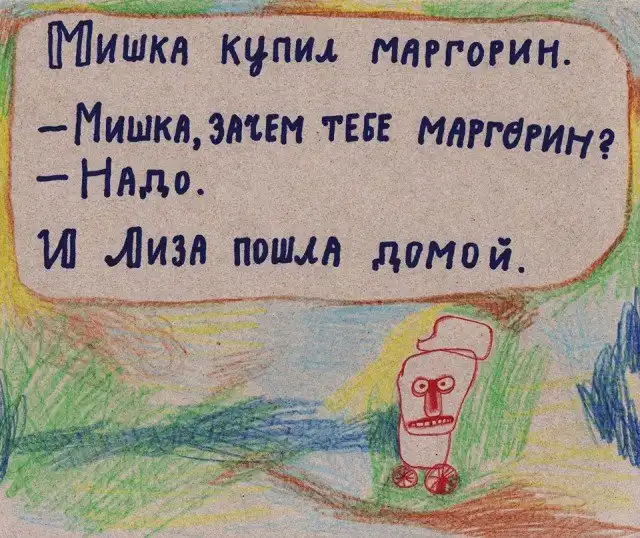 Мишка купил маргорин.
— Мишка, зачем тебе маргорин?
— Надо.
И Лиза пошла домой.